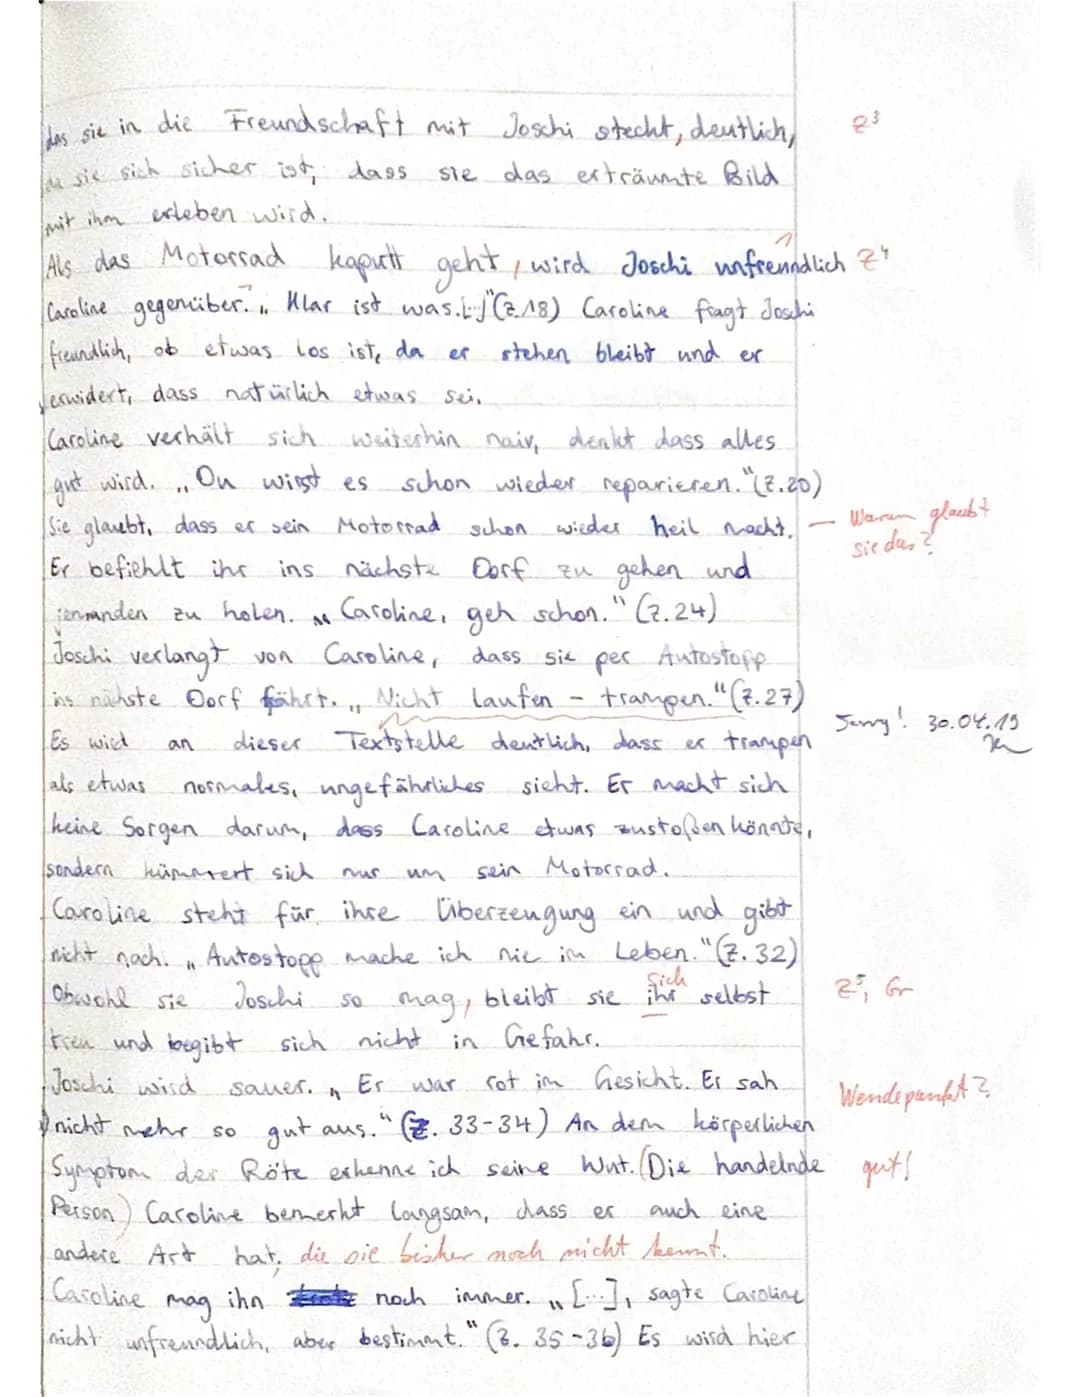 das sie in die Freundschaft mit Joschi steckt, deutlich, Z³
da sie sich sicher ist, dass sie das erträumte Bild
mit ihm erleben wird.
Als das Motorrad kaputt geht, wird Joschi unfreundlich Z⁴
Caroline gegenüber. „Klar ist was.[...]"(Z.18) Caroline fragt Joschi
freundlich, ob etwas los ist, da er stehen bleibt und er
erwidert, dass natürlich etwas sei.
Caroline verhält sich weiterhin naiv, denkt dass alles
gut wird. „Du wirst es schon wieder reparieren."(Z.20)
Sie glaubt, dass er sein Motorrad schon wieder heil macht. – Warum glaubt
sie das?
Er befiehlt ihr ins nächste Dorf zu gehen und
jemanden zu holen. „Caroline, geh schon." (Z.24)
Joschi verlangt von Caroline, dass sie per Autostopp
ins nächste Dorf fährt. „Nicht laufen – trampen."(Z.27)
30.04.19
Es wird an dieser Textstelle deutlich, dass er trampen
als etwas normales, ungefährliches sieht. Er macht sich
keine Sorgen darum, dass Caroline etwas zustoßen könnte,
sondern kümmert sich nur um sein Motorrad.
Caroline steht für ihre Überzeugung ein und gibt
nicht nach. „Autostopp mache ich nie im Leben."(Z.32)
sich
Obwohl sie Joschi so mag, bleibt sie ihr selbst Z⁵, Gr
treu und begibt sich nicht in Gefahr.
Joschi wird sauer. „Er war rot im Gesicht. Er sah Wendepunkt?
nicht mehr so gut aus." (Z. 33-34) An dem körperlichen
Symptom der Röte erkenne ich seine Wut. (Die handelnde gut!
Person) Caroline bemerkt langsam, dass er auch eine
andere Art hat, die sie bisher noch nicht kennt.
Caroline mag ihn noch immer. „[...], sagte Caroline
nicht unfreundlich, aber bestimmt." (Z. 35-36) Es wird hier